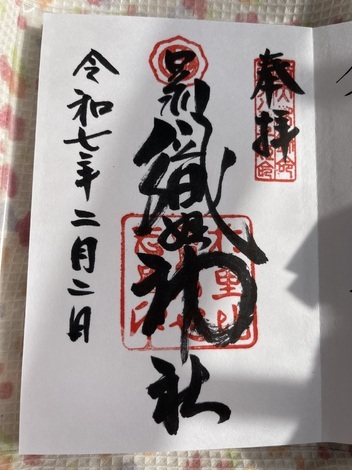 奉拝
足利織姫神社
令和七年二月二日